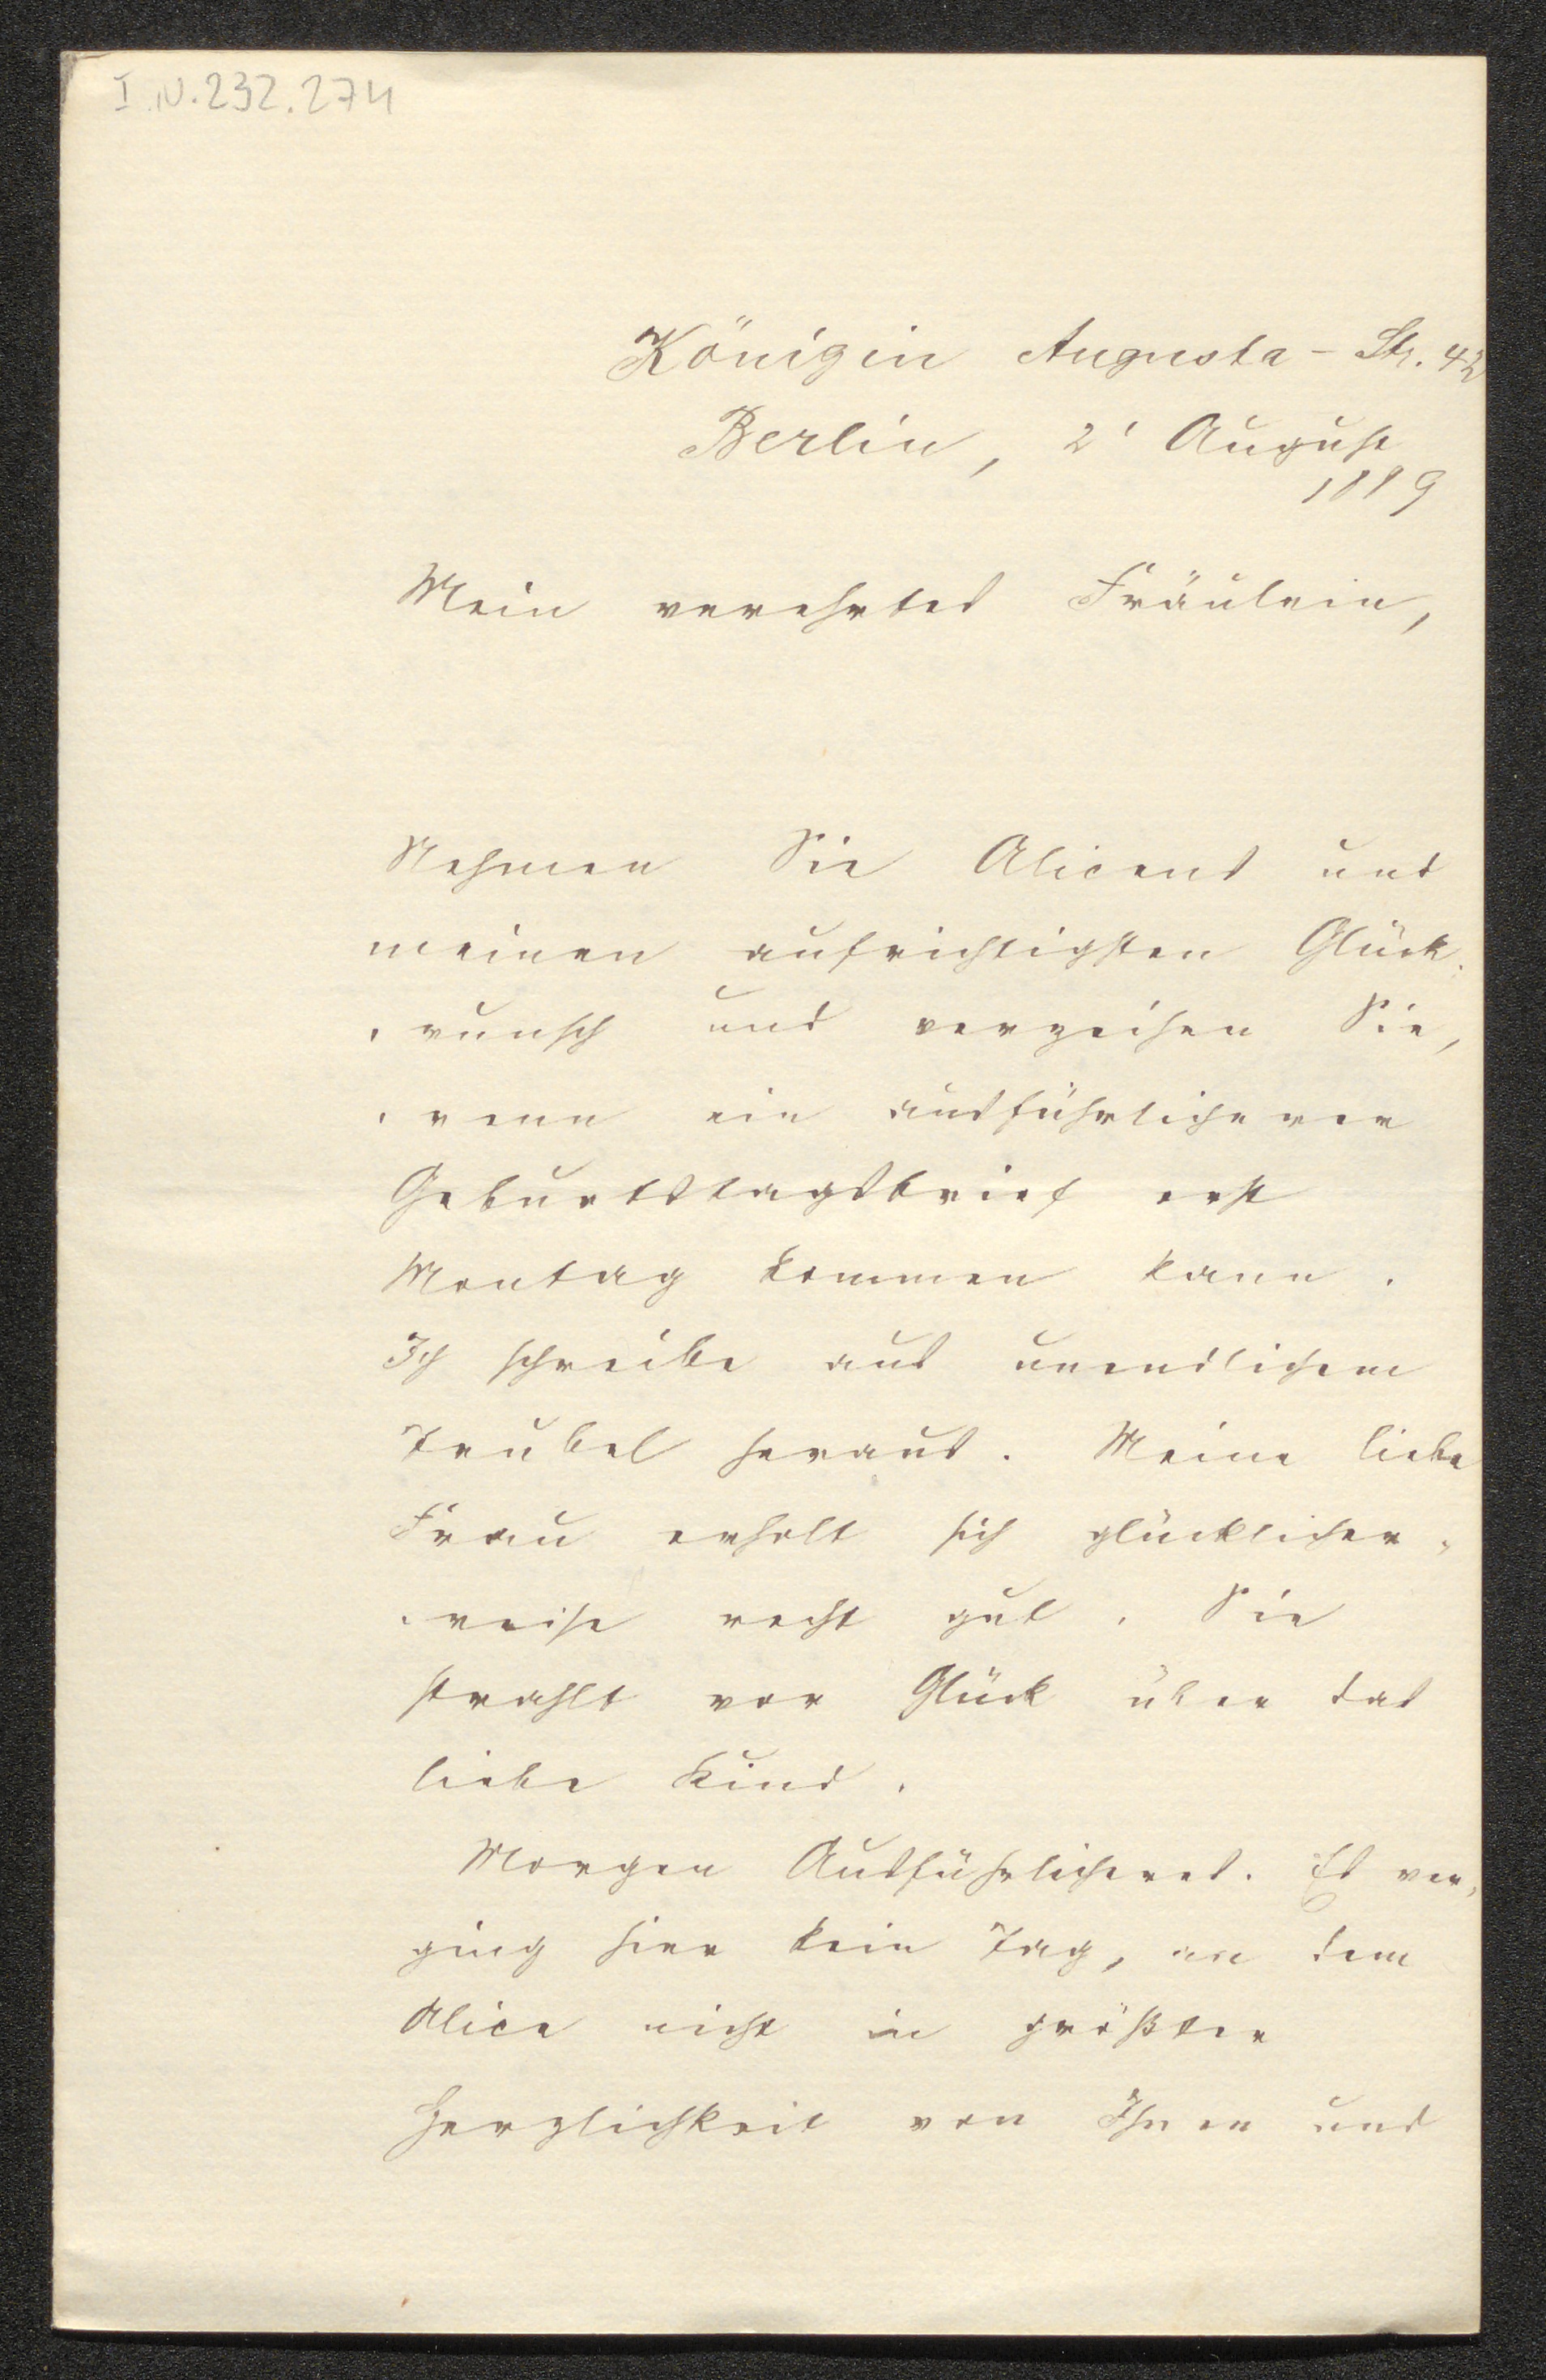 I.N.232.274
Königin Augusta-Str. 42
Berlin, 2' August
1889
Mein verehrtes Fräulein,
Nehmen Sie Alicens und
meinen aufrichtigsten Glück-
-wunsch und verzeihen Sie,
wenn ein ausführlicherer
Geburtstagsbrief erst
Montag kommen kann.
Ich schreibe aus unendlichem
Trubel heraus. Meine liebe
Frau erholt sich glücklicher-
-weise recht gut. Sie
strahlt vor Glück über das
liebe Kind.
Morgen Ausführlicheres. Es ver-
ging hier kein Tag, an dem
Alice nicht in größter
Herzlichkeit von Ihnen und